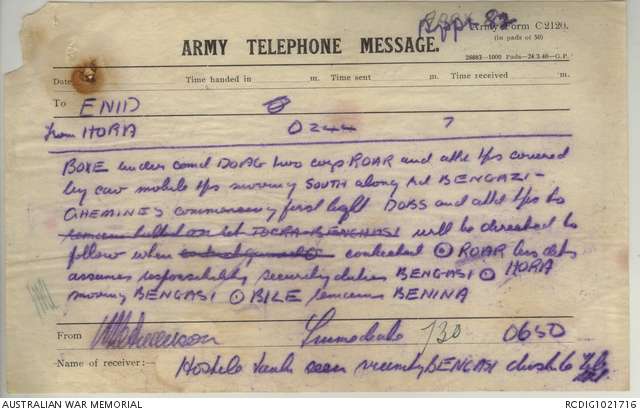 Appx 82
Army Form C2120.
(in pads of 50)
28663—1000 Pads—24.3.40—G.P.
ARMY TELEPHONE MESSAGE.
Date Time handed in m. Time sent m. Time received m.
To ENID
From HORA O 244 7
BOXE under comd DOAG two coys ROAR and attd tps covered
by cav mobile tps moving SOUTH along rd BENGAZI -
GHEMINES commencing first light DOBS and attd tps to
TOCRA BENGHASI will be directed to
follow when contacted ROAR less dets
assumes responsibility security duties BENGASI HORA
moving BENGASI BILE remains BENINA
From Immediate 730 0650
Name of receiver:— Hostile tanks seen vicinity BENGASI
AUSTRALIAN WAR MEMORIAL RCDIG1021716